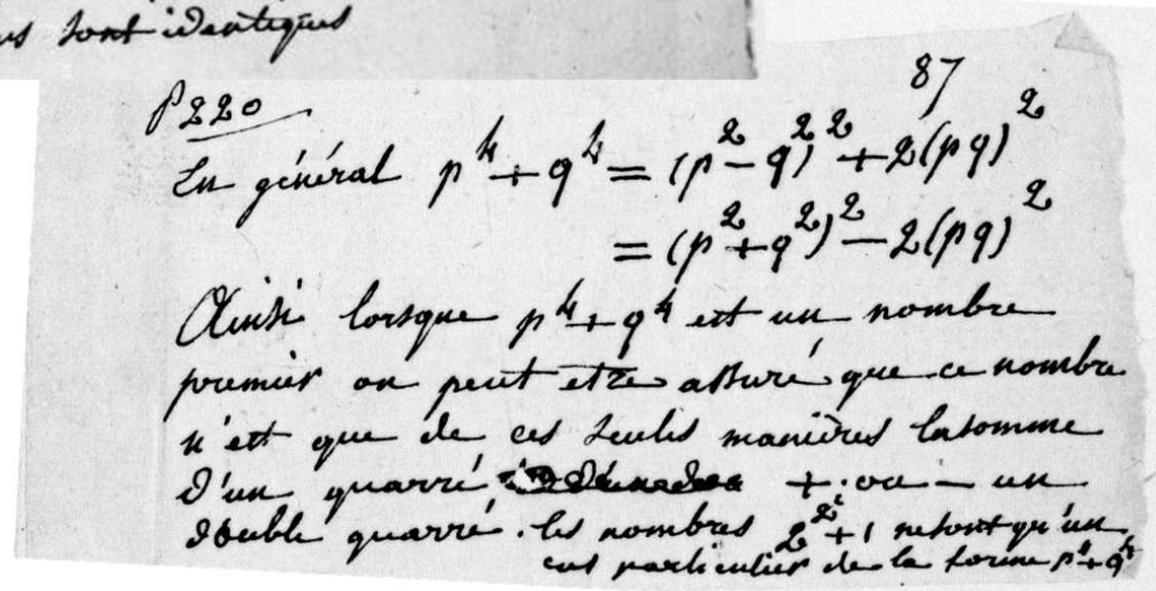 sont identiques
P 220
87
En général p⁴ + q⁴ = (p² - q²)² + 2(pq)²
= (p² + q²)² - 2(pq)²
Ainsi lorsque p⁴ + q⁴ est un nombre
premier on peut etre assuré que ce nombre
n'est que de ces seules manières la somme
d'un quarré + ou - un
double quarré. les nombres 2^2^i + 1 ne sont qu'un
cas particulier de la forme p⁴ + q⁴